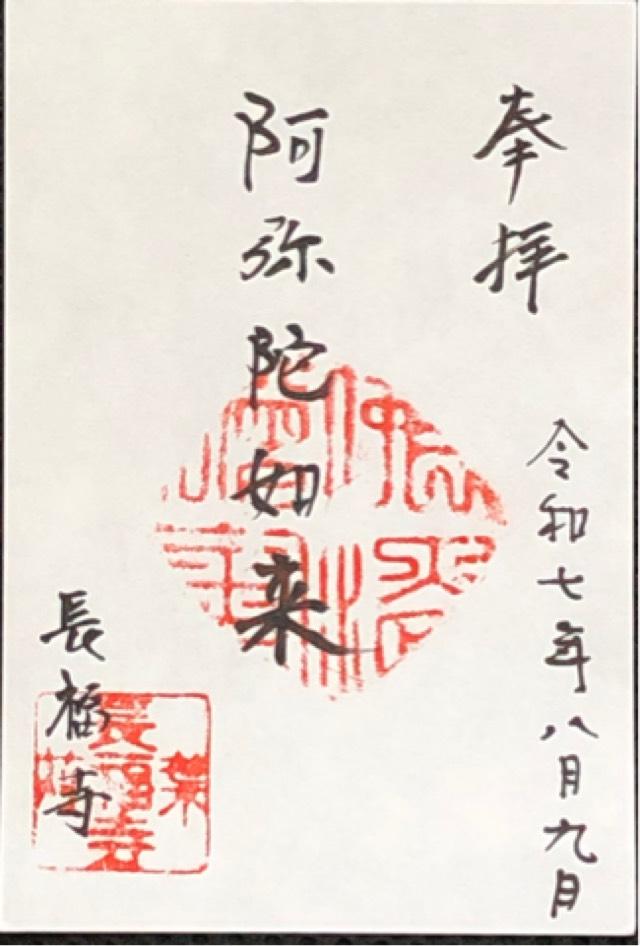 奉拝
令和七年八月九日
阿弥陀如来
長福寺
長福寺